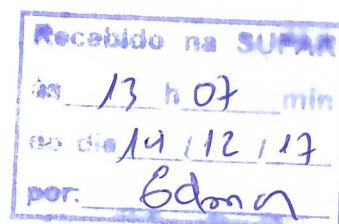 Recebido na SUPAR
às 13 h 07 min
do dia 14 / 12 / 17
por. Edma